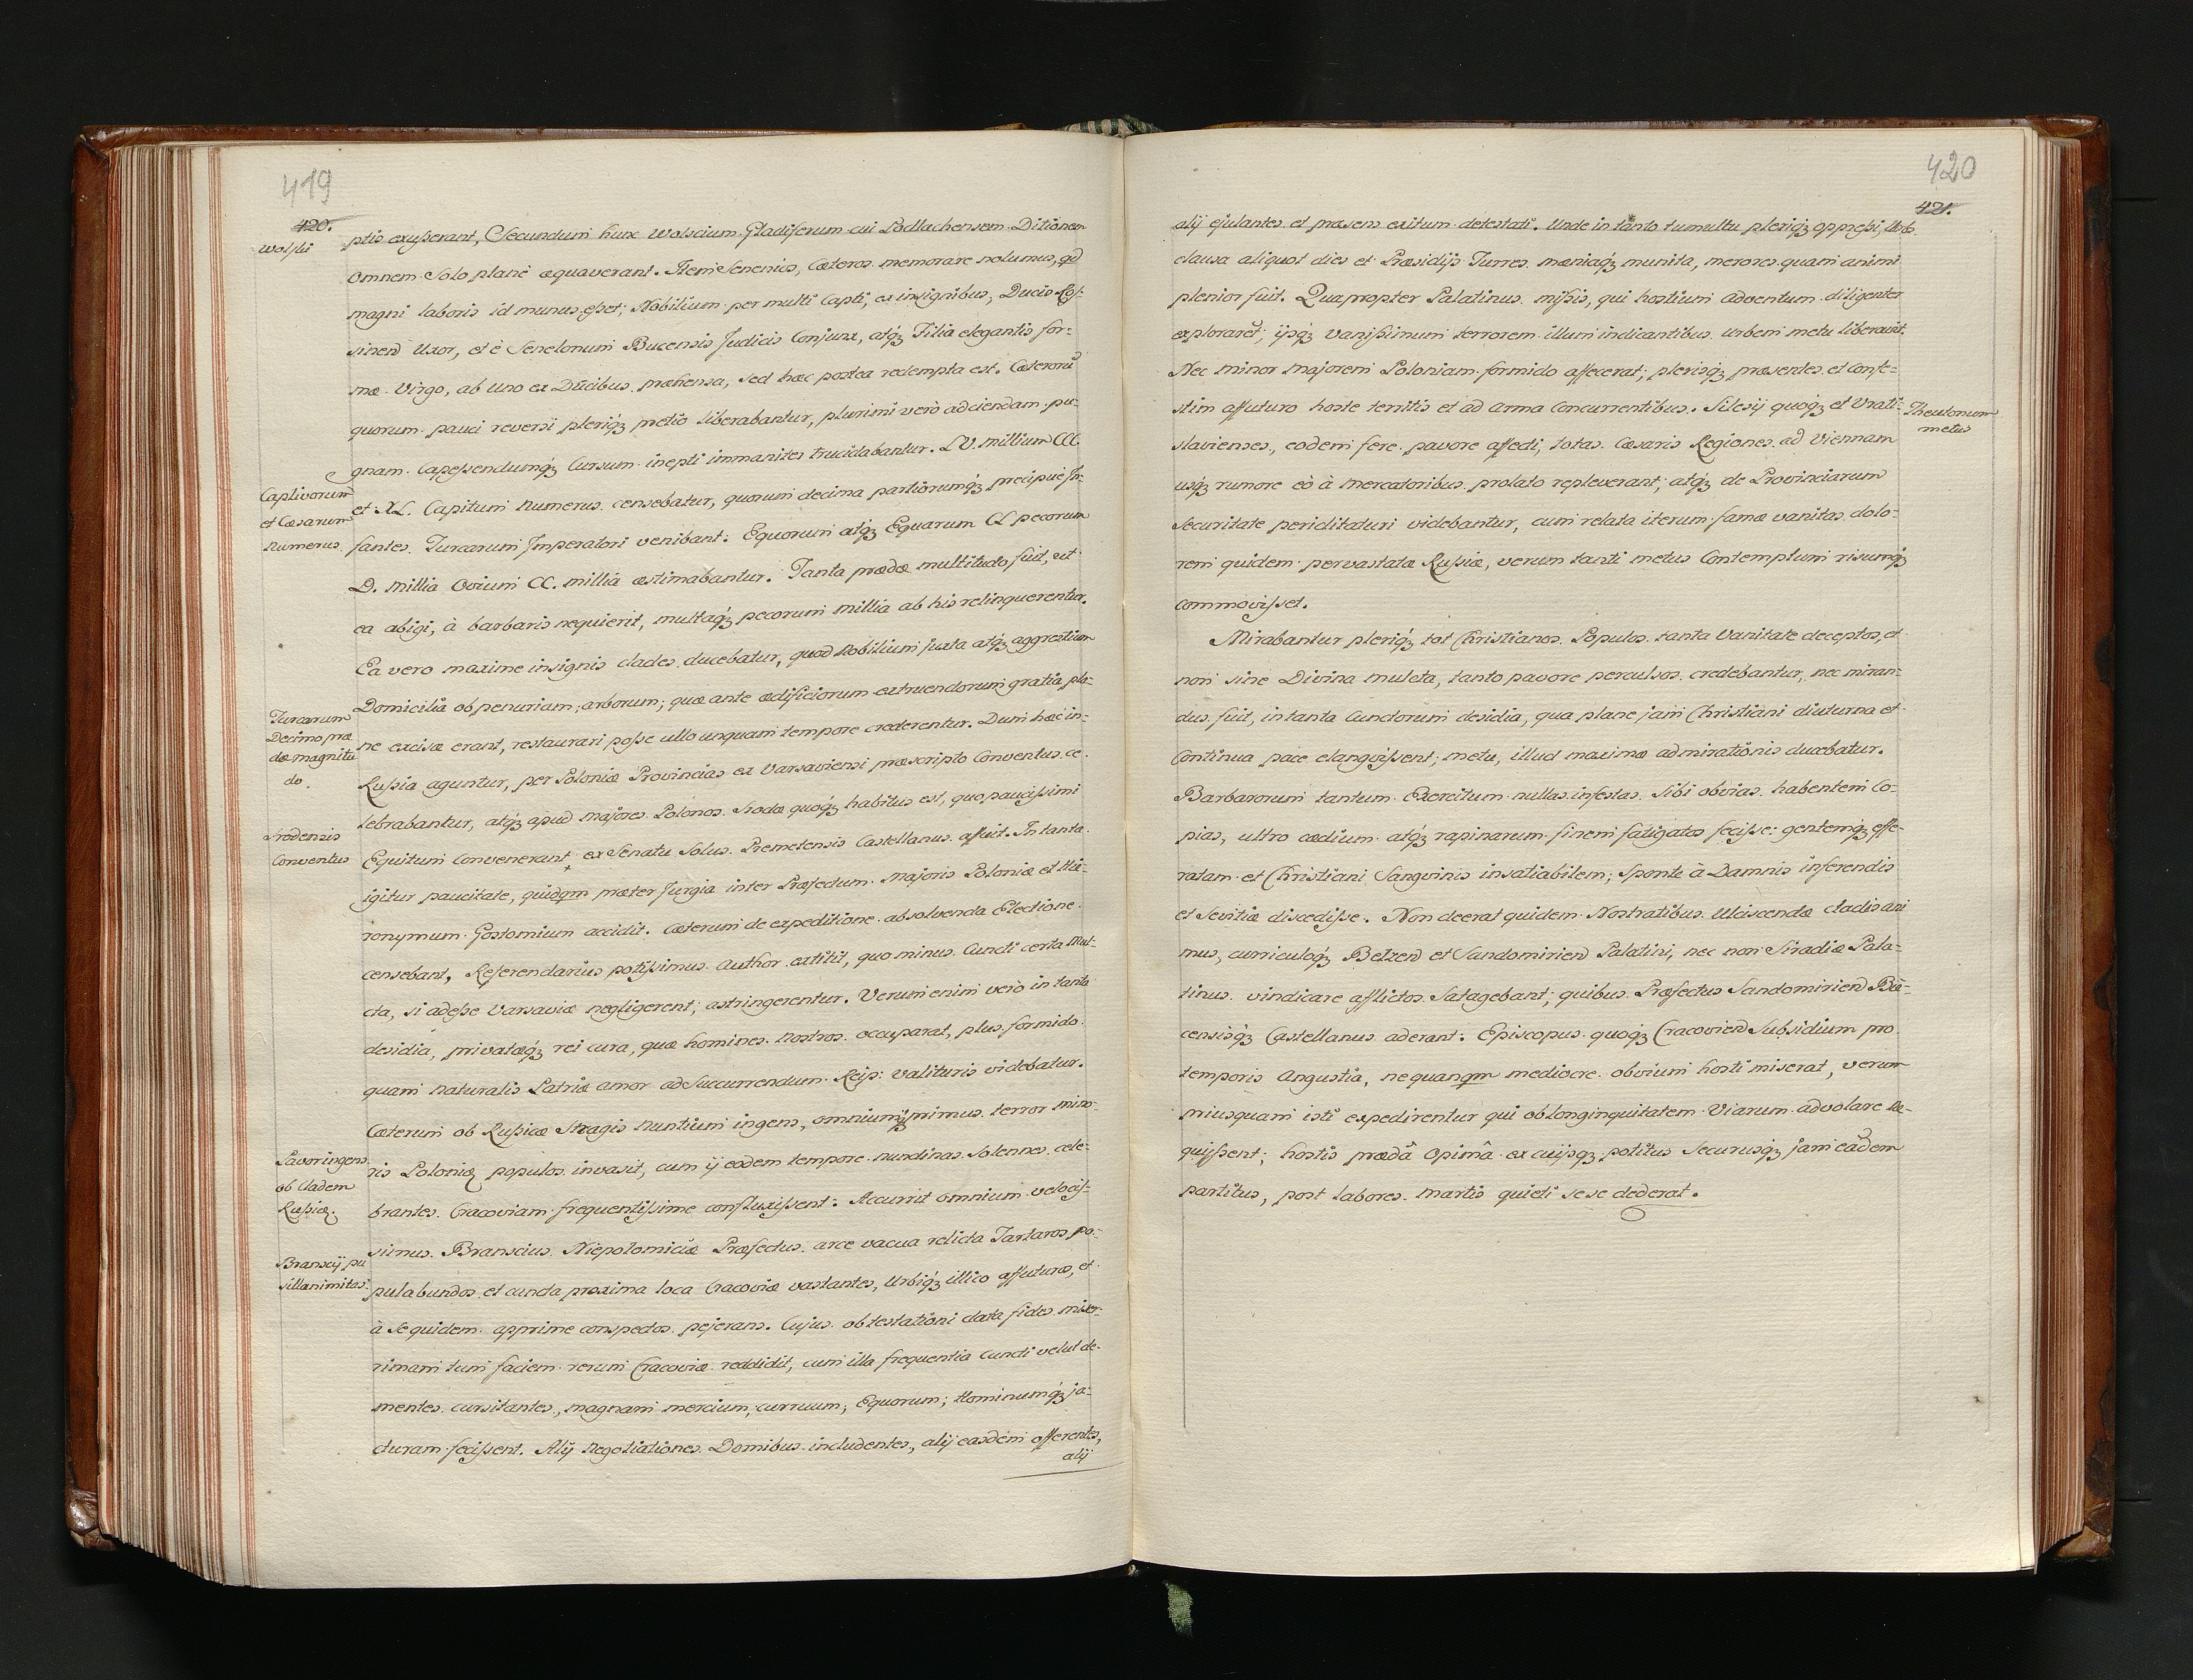 419
420.
Wolski
ptis exusserant, Secundum hunc Wolscium Gladiferum cui Podlachensem Ditionem
omnem Solo planè æquaverant. Item Senenios, Cæteros memorare nolumus, qd
magni laboris id munus esset; Nobilium per multi Capti, ex insignibus, Ducis Ros:
sinen Uxor, et è Senelonum Bucensis Judicis Conjunx, atq; Filia elegantis for:
mæ Virgo, ab uno ex Ducibus prehensa, sed hæc postea redempta est. Cæterorũ
quorum pauci reversi pleriq; pretio liberabantur, plurimi verò ad ciendam pu:
gnam Capessendumq; Cursum inepti immaniter trucidabantur. LV. millium CCC.
Captivorum
et Cæsarum
Numerus.
et XL. Capitum Numerus censebatur, quorum decima partiorumq; precipuè In:
fantes Turcarum Imperatori venibant: Equorum atq; Equarum CL pecorum
D. millia Ovium CC. millia æstimabantur. Tanta prædæ multitudo fuit, ut
ea abigi, à barbaris nequierit, multaq; pecorum millia ab his relinquerentur.
Ea vero maxime insignis clades ducebatur, quod Nobilium juxta atq; aggrestium
Turcarum
Decimo præ
dæ magnitu
do.
Domicilia ob penuriam, arborum; quæ ante ædificiorum extruendorum gratia pla:
ne excisæ erant, restaurari posse ullo unquam tempore crederentur. Dum hæc in:
Russia aguntur, per Poloniæ Provincias ex Varsaviensi præscripto Conventus ce:
lebrabantur, atq; apud majores Polonos Srodæ quoq; habitus est, quo paucissimi
Srodensis
Conventus
Equitum Convenerant, ex Senatu Solus Premetensis Castellanus affuit. In tanta
igitur paucitate, quidqm præter Jurgia inter Præfectum Majoris Poloniæ et Hie:
ronymum Gostomium accidit. Cæterum de expeditione absolvenda Electione
censebant, Referendarius potissimus Author extitit, quo minus Cuncti certa Mul:
cta, si adesse Varsaviæ negligerent, astringerentur. Verum enim verò in tanta
desidia, privatæq; rei cura, quæ homines nostros occuparat, plus formido
quam naturalis Patriæ amor ad Succurrendum Reip: valituris videbatur.
Cæterum ob Russicæ Stragis Nuntium ingens, omniumq; primus terror mino:
Pavor ingens
ob Cladem
Russicæ.
ris Poloniæ populos invasit, cum ij eodem tempore nundinas Solennes cele:
brantes Cracoviam frequentissime confluxissent: Accurrit omnium velocis:
simus Branscius Niepolomiciæ Præfectus arce vacua relicta Tartaros po:
Branscij pu
sillanimitas.
pulabundos et cuncta proxima loca Cracoviæ vastantes, Urbiq; illico affuturos, et
à se quidem apprime conspectos pejerans. Cujus obtestationi data fides miser:
rimam tum faciem rerum Cracoviæ reddidit, cum illa frequentia Cuncti velut de:
mentes cursitantes, magnam mercium, curruum, Equorum, Hominumq; ja:
cturam fecissent. Alij Negotiationes Domibus includentes, alij easdem offerentes,
alij
420
421.
alij ejulantes et præsens exitum detestati. Unde in tanto tumultu pleriq; oppressi, Urbs
clausa aliquot dies et Præsidijs Turres mæniaq; munita, meroris quam animi
plenior fuit. Quapropter Palatinus missis, qui hostium adventum diligenter
explorarẽt, ijsq; vanissimum terrorem illum indicantibus Urbem metu liberavit.
Nec minor majorem Poloniam formido affecerat; plerisq; præsentes et confe:
stim affuturo hoste territis et ad Arma Concurrentibus. Silesij quoq; et Vrati:
Theutonum
metus
slavienses, eodem fere pavore affecti, totas Cæsaris Regiones ad Viennam
usq; rumore eò à mercatoribus prolato repleverant; atq; de Provinciarum
securitate periclitaturi videbantur, cum relata iterum famæ vanitas dolo:
rem quidem pervastatæ Russiæ, verum tanti metus Contemptum risumq;
commovisset.
Mirabantur pleriq; tot Christianos Populos tanta Vanitate deceptos, et
non sine Divina mulcta, tanto pavore perculsos credebantur, nec miran:
dus fuit, in tanta Cunctorum desidia, qua plane jam Christiani diuturna et
Continua pace elanguissent; metu, illud maximæ admirationis ducebatur.
Barbarorum tantum Exercitum nullas infestas Sibi obvias habentem Co:
pias, ultro cædium atq; rapinarum finem fatigatos fecisse: gentemq; effe:
ratam et Christiani Sangvinis insatiabilem; Sponte à Damnis inferendis
et Sevitiæ discedisse. Non deerat quidem Nostratibus Ulciscendæ cladis ani
mus, curriculoq; Belzen et Sandomirien Palatini, nec non Siradiæ Pala:
tinus vindicare afflictos Satagebant; quibus Præfectus Sandomirien Bu:
censisq; Castellanus aderant: Episcopus quoq; Cracovien Subsidium pro
temporis Angustia, nequanqm mediocre obvium hosti miserat, verum
priusquam isti expedirentur qui ob longinquitatem Viarum advolare Ne:
quissent; hostis prædâ Opimâ ex cuijsq; potitus Securusq; jam eãdem
partitus, post labores Martis quieti sese dederat.